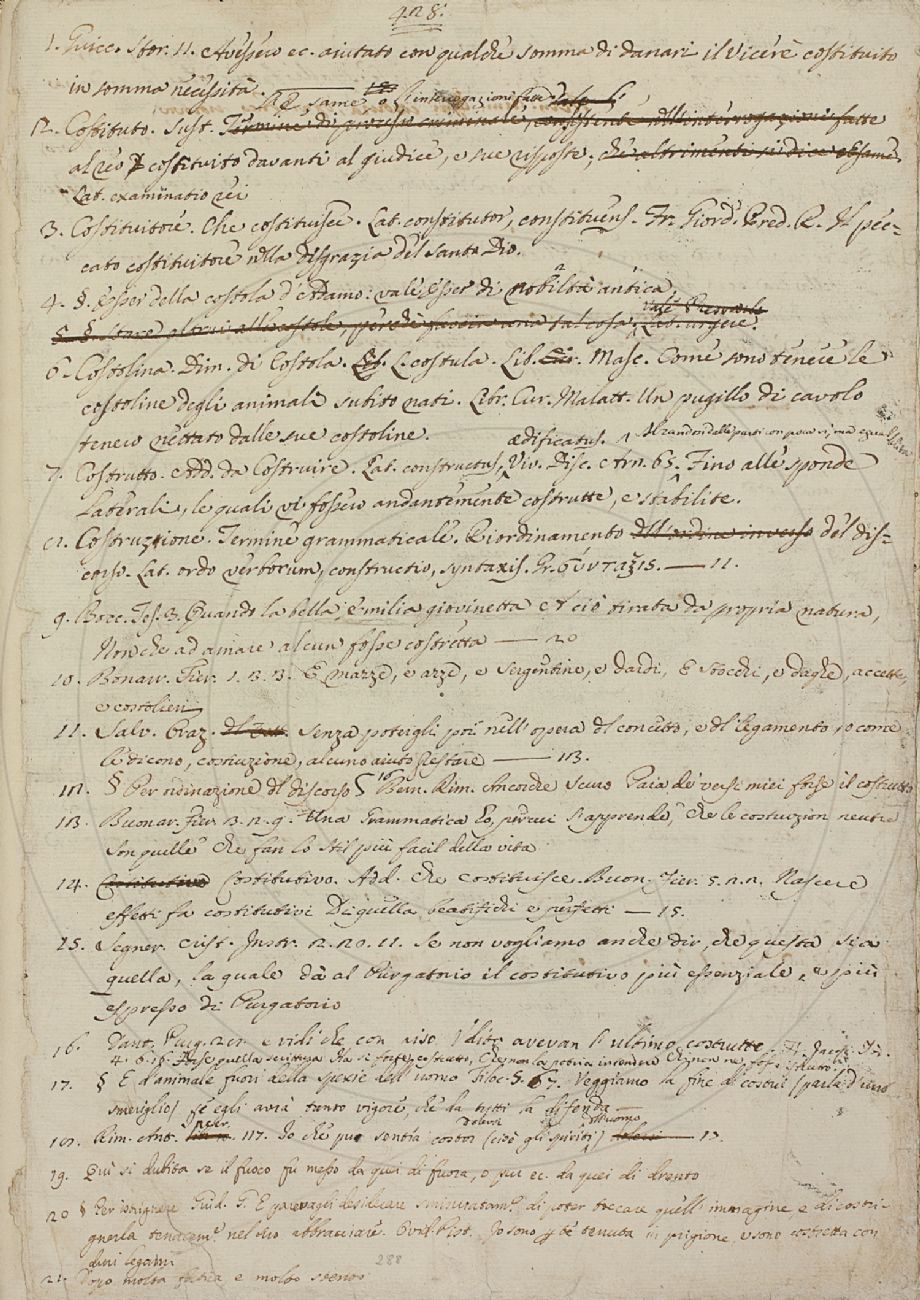 428.
1. Guicc. Stor. 11. Avessero ec. aiutato con qualche somma di danari il Vicerè costituito
in somma necessità.
12. Costituto. Sust. Termine di processo criminale, consistente all'interrogazioni fatte
al reo costituito davanti al giudice, e sue risposte; che altrimenti si dice esame.
Lat. examinatio rei
3. Costituitore. Che costituisce. Lat. constitutor, constituens. Fr. Giord. Pred. R. Il pec=
cato costituitore nella disgrazia del Santo Dio.
4. §. Esser della costola d'Adamo: vale, Esser di nobiltà antica.
5. §. Stare altrui alle costole, perchè faccia una tal cosa; Lat. urgere.
6. Costolina. Dim. di Costola. L. costula. Lib. Masc. Come sono tenere le
costoline degli animali subito nati. Libr. Cur. Malatt. Un pugillo di cavolo
tenero nettato dalle sue costoline.
aedificatus.
7. Costrutto. Add. da Costruire. Lat. constructus, Viv. Disc. Arn. 65. Fino alle sponde
laterali, le quali vi fossero andantemente costrutte, e stabilite.
Costruzione. Termine grammaticale. Riordinamento dell'ordine inverso del dis=
corso. Lat. ordo verborum, constructio, syntaxis. Gr. σύνταξις. — 11.
9. Bocc. Tes. 3. Quando la bella Emilia giovinetta A ciò tirata da propria natura,
Non che ad amare alcun fosse costretta — 20
10. Bonarr. Fier. 1. 3. 3. E mazze, e azze, e sergentine, e dardi, E stocchi, e daghe, accette,
e costolieri
11. Salv. Graz. Senza potergli poi nell'opera del concetto, e del legamento, o come
le dicono, costruzione, alcuno aiuto prestare — 13.
§ Per ordinazione del discorso § Bern. Rim. Ancorchè scuro Paia de' versi miei forse il costrutto
13. Buonar. Fier. 3. 2. 9. Una Grammatica ho, per cui s'apprende, Che le costruzion neutre
Son quelle Che fan lo stil più facil della vita
14. Costitutivo Costitutivo. Add. Che costituisce. Buon. Fier. 5. 2. 2. Nascere
effetti fa costitutivi Di quella beatifichi e perfetti — 15.
15. Segner. Crist. Instr. 12. 20. 11. Se non vogliamo anche dir, che questa sia
quella, la quale dà al Purgatorio il costitutivo più essenziale, e più
espresso di Purgatorio
16. Dant. Purg. 28. e vidi che con riso Udito avevan l'ultimo costrutto
17. § E d'animale fuori della spezie dell'uomo Filoc. 5. 67. Veggiamo la fine di costui (parla d'uno
smeriglio) se egli avrà tanto vigore, che da tutti la difenda
Rim. Ant. 117. Io che pur sentia costor (cioè gli spiriti) dolersi — 17.
19. Qui si dubita se il fuoco fu messo da quei di fuora, o pur ec. da quei di drento
20 § Per istrignere Guid. G. E parevagli desiderare smisuratam.e di poter toccare quell'immagine, e di costri=
gnerla tenacem.e nel suo abbracciare. Ovid. Pist. Io sono p te tenuta in prigione, e sono costretta con
duri legami
288
21. Dopo molta fatica e molto stento